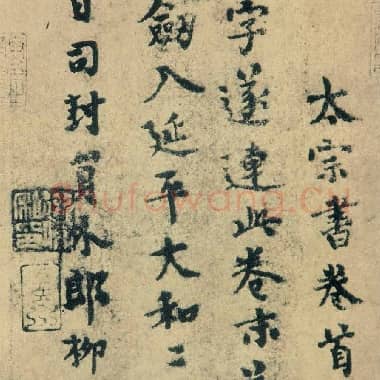 太宗書卷首
字遂連此卷末
劒入延平大和二
日司封員外郎柳
Shufawang.cn